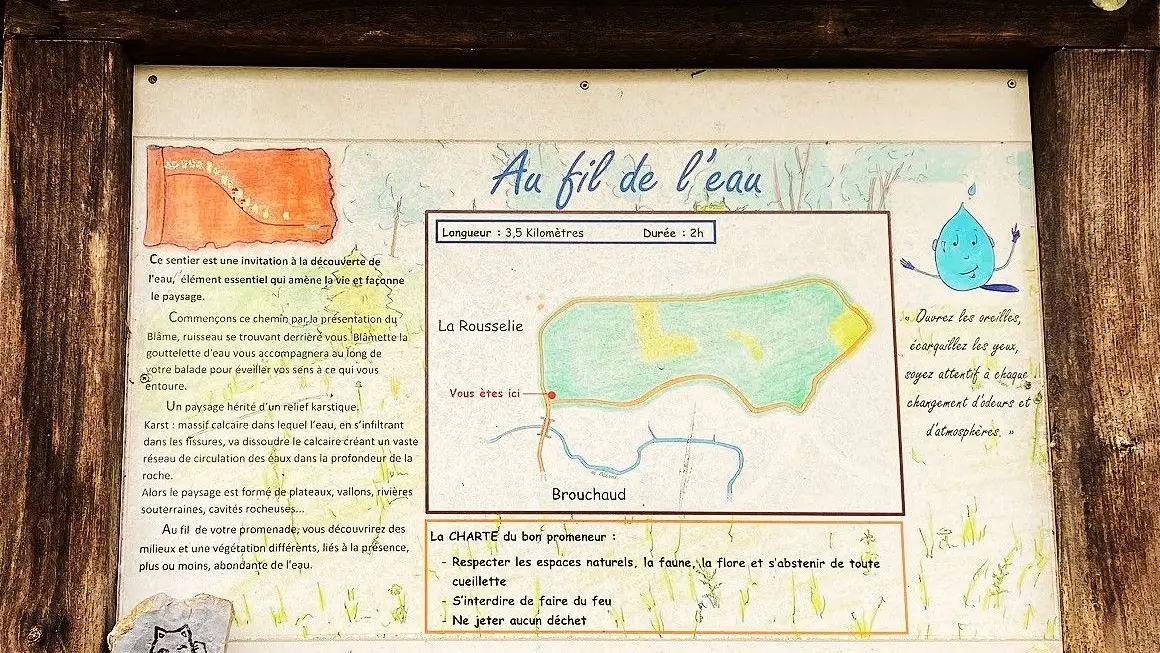 Au fil de l'eau
Ce sentier est une invitation à la découverte de
l'eau, élément essentiel qui amène la vie et façonne
le paysage.
Commençons ce chemin par la présentation du
Blâme, ruisseau se trouvant derrière vous. Blâmette la
gouttelette d'eau vous accompagnera au long de
votre balade pour éveiller vos sens à ce qui vous
entoure.
Un paysage hérité d'un relief karstique.
Karst : massif calcaire dans lequel l'eau, en s'infiltrant
dans les fissures, va dissoudre le calcaire créant un vaste
réseau de circulation des eaux dans la profondeur de la
roche.
Alors le paysage est formé de plateaux, vallons, rivières
souterraines, cavités rocheuses...
Au fil de votre promenade, vous découvrirez des
milieux et une végétation différents, liés à la présence,
plus ou moins, abondante de l'eau.
Longueur : 3,5 Kilomètres
Durée : 2h
La Rousselie
Vous êtes ici
Brouchaud
La CHARTE du bon promeneur :
- Respecter les espaces naturels, la faune, la flore et s'abstenir de toute
cueillette
- S'interdire de faire du feu
- Ne jeter aucun déchet
« Ouvrez les oreilles,
écarquillez les yeux,
soyez attentif à chaque
changement d'odeurs et
d'atmosphères. »